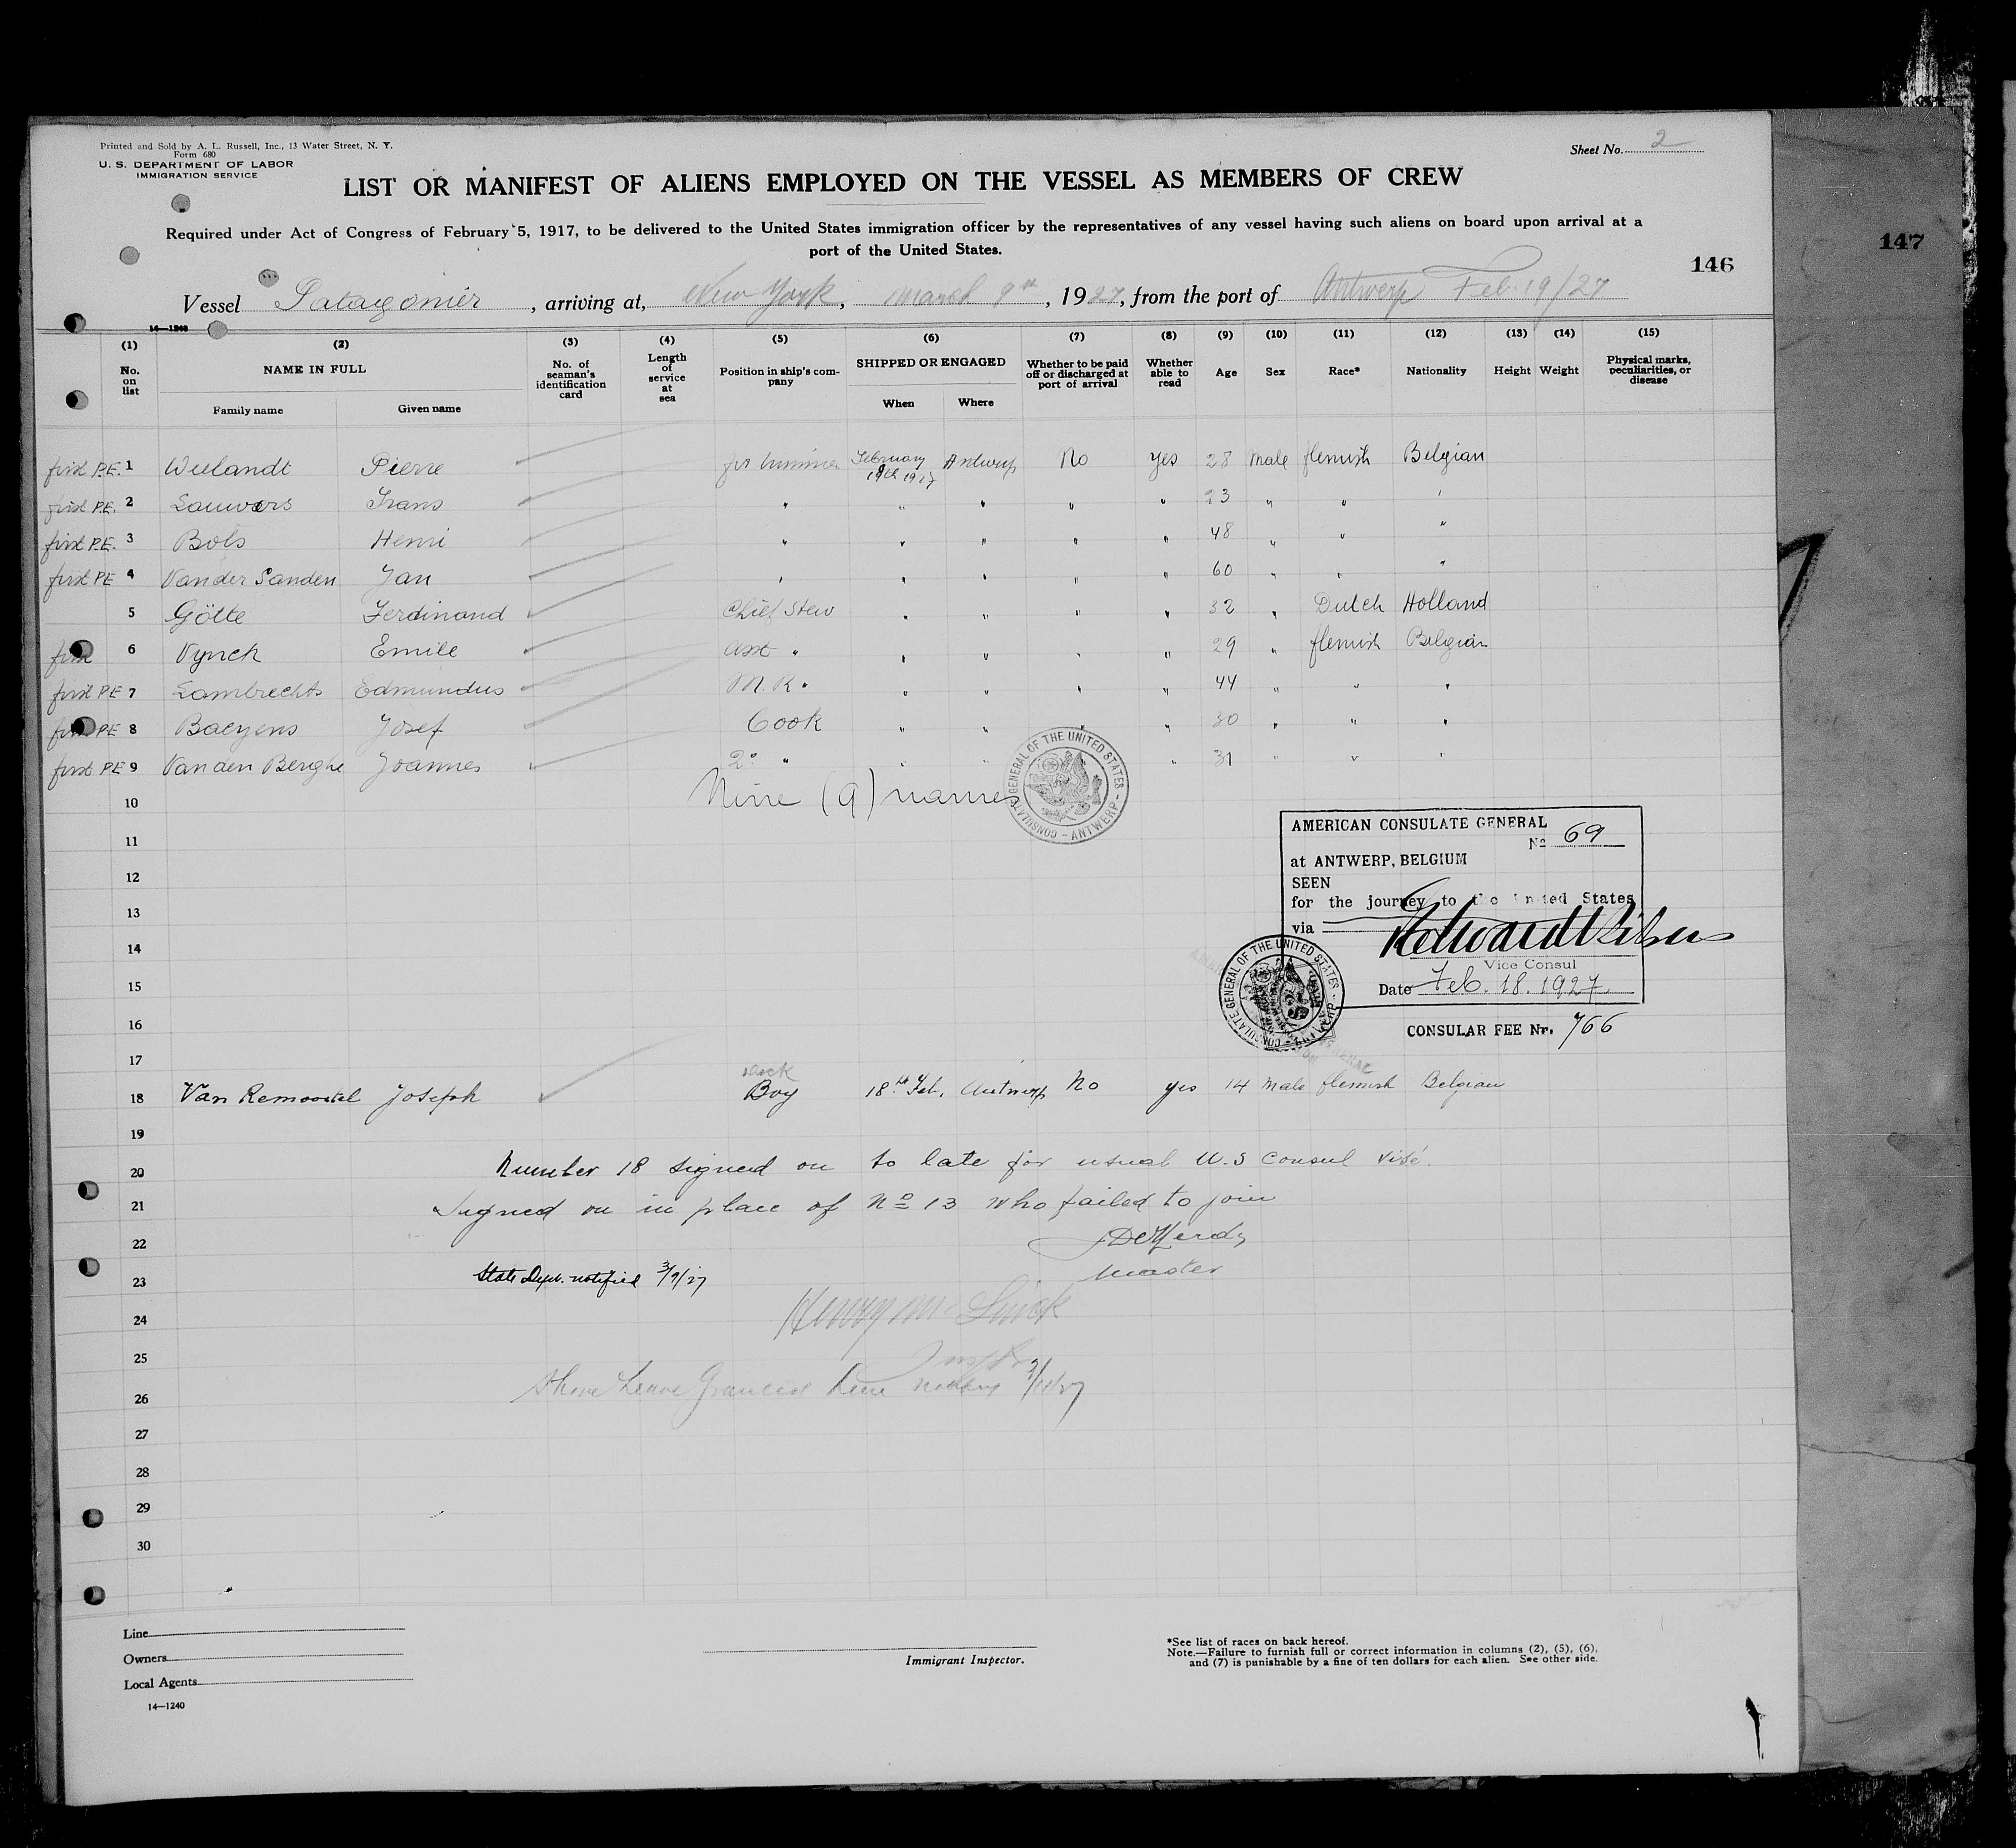 Printed and Sold by A. L. Russell, Inc., 13 Water Street, N. Y.
Form 680
U. S. DEPARTMENT OF LABOR
IMMIGRATION SERVICE
Sheet No. 2
LIST OR MANIFEST OF ALIENS EMPLOYED ON THE VESSEL AS MEMBERS OF CREW
Required under Act of Congress of February 5, 1917, to be delivered to the United States immigration officer by the representatives of any vessel having such aliens on board upon arrival at a
port of the United States.
147
146
Vessel Patagonier, arriving at, New York, March 9th, 1927, from the port of Antwerp Feb. 19/27
14—1240
(1) (2) (3) (4) (5) (6) (7) (8) (9) (10) (11) (12) (13) (14) (15)
No. on list
NAME IN FULL
Family name Given name
No. of seaman's identification card
Length of service at sea
Position in ship's company
SHIPPED OR ENGAGED
When Where
Whether to be paid off or discharged at port of arrival
Whether able to read
Age
Sex
Race*
Nationality
Height
Weight
Physical marks, peculiarities, or disease
first P.E. 1 Wielandt Pierre February 19th 1927 Antwerp No yes 28 male flemish Belgian
first P.E. 2 Lauwers Frans " " " " " 23 " " "
first P.E. 3 Bols Henri " " " " " 48 " " "
first PE 4 Van der Sanden Jan " " " " " 60 " " "
5 Götte Ferdinand Chief Stew " " " " 32 " Dutch Holland
first 6 Vynck Emile Asst " " " " " 29 " flemish Belgian
first PE 7 Lambrechts Edmundus M. R. " " " " 44 " " "
first PE 8 Baeyens Josef Cook " " " " 30 " " "
first PE 9 Van den Berghe Joannes 2° " " " " 31 " " "
Nine (9) names
CONSULATE GENERAL OF THE UNITED STATES - ANTWERP -
10
11
12
13
14
15
16
17
AMERICAN CONSULATE GENERAL
No 69
at ANTWERP, BELGIUM
SEEN
for the journey to the United States
via
Vice Consul
Date Feb. 18. 1927.
CONSULATE GENERAL OF THE UNITED STATES - ANTWERP -
CONSULAR FEE Nr. 766
deck
18 Van Remoortel Joseph Boy 18th Feb. Antwerp No yes 14 male flemish Belgian
19
20 Number 18 signed on to late for usual U.S Consul visé.
21 Signed on in place of No 13 who failed to join
22
Master
23 State Dept. notified 3/9/27
24
25
26 Shore Leave Granted Line 3/11/27
27
28
29
30
Line
Owners
Local Agents
14—1240
Immigrant Inspector.
*See list of races on back hereof.
Note.—Failure to furnish full or correct information in columns (2), (5), (6), and (7) is punishable by a fine of ten dollars for each alien. See other side.